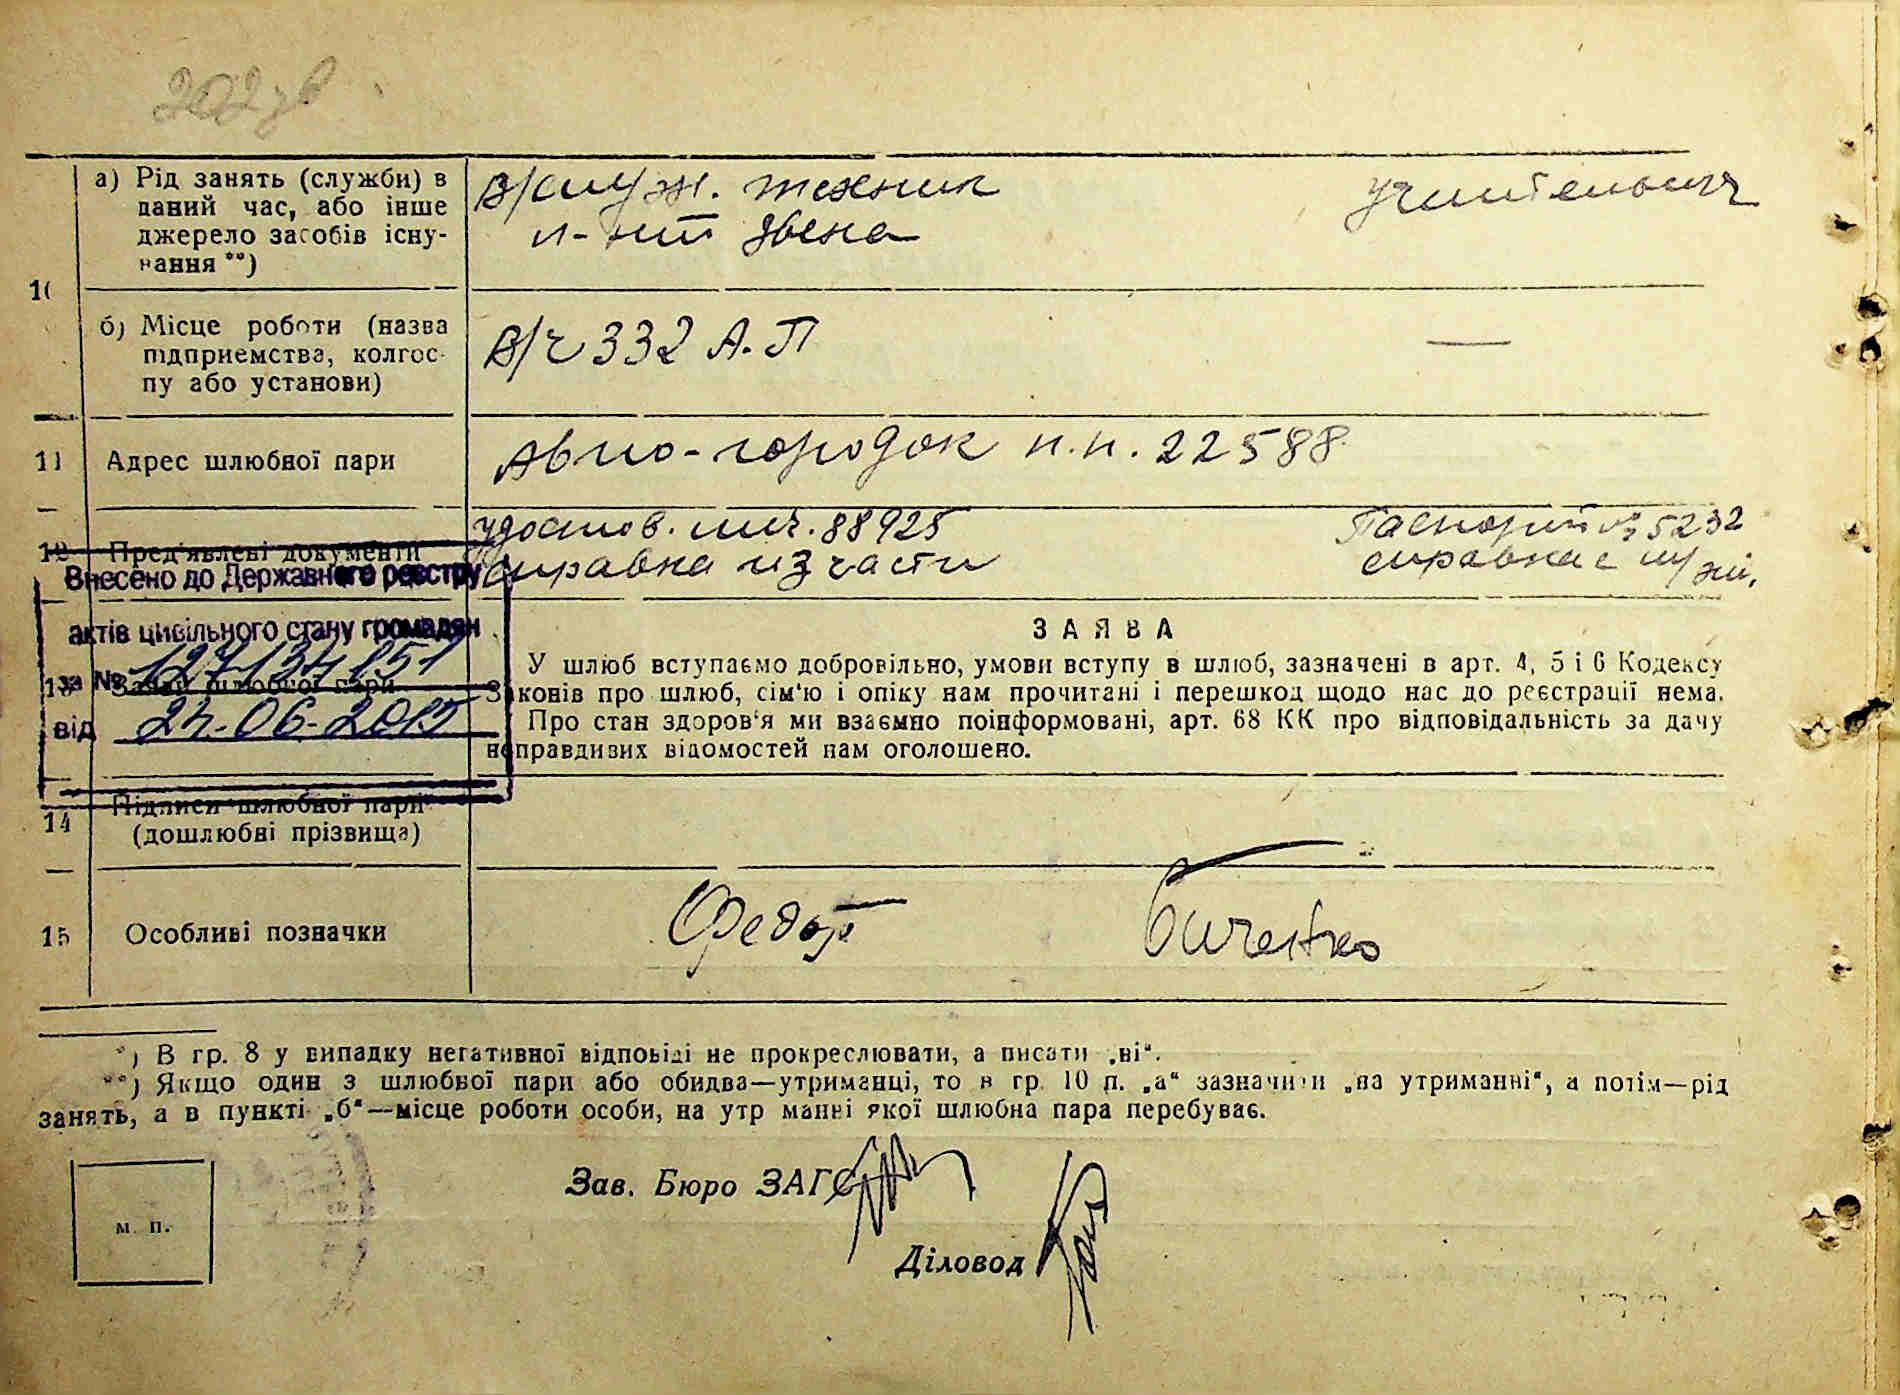 202
а) Рід занять (служби) в
даний час, або інше
джерело засобів існу-
вання **)
В/служ. техник
л-нт звена
10
б) Місце роботи (назва
підприємства, колгос-
пу або установи)
В/ч 332 А.П
—
11 Адрес шлюбної пари
Авио-городок п.п. 22588
12 Пред'явлені документи
удостов. лич. 88925
справка из части
Паспорт № 5232
справка с
Внесено до Державного реєстру
актів цивільного стану громадян
за № 127134151
від 24-06-2015
13 Заява шлюбної пари
ЗАЯВА
У шлюб вступаємо добровільно, умови вступу в шлюб, зазначені в арт. 4, 5 і 6 Кодексу
Законів про шлюб, сім'ю і опіку нам прочитані і перешкод щодо нас до реєстрації нема.
Про стан здоров'я ми взаємно поінформовані, арт. 68 КК про відповідальність за дачу
неправдивих відомостей нам оголошено.
14 Підписи шлюбної пари
(дошлюбні прізвища)
15 Особливі позначки
*) В гр. 8 у випадку негативної відповіді не прокреслювати, а писати „ні“.
**) Якщо один з шлюбної пари або обидва—утриманці, то в гр. 10 п. „а“ зазначити „на утриманні“, а потім—рід
занять, а в пункті „б“—місце роботи особи, на утр манні якої шлюбна пара перебуває.
Зав. Бюро ЗАГС
м. п.
Діловод